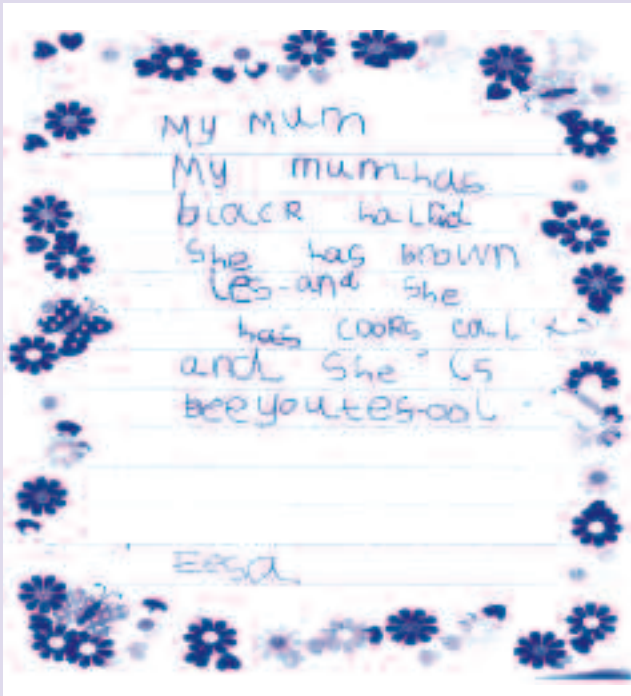 My Mum
My mum has
blacR
She has brown
ies-and she
has cooRs
and She is
beeyoutesool
Eesa